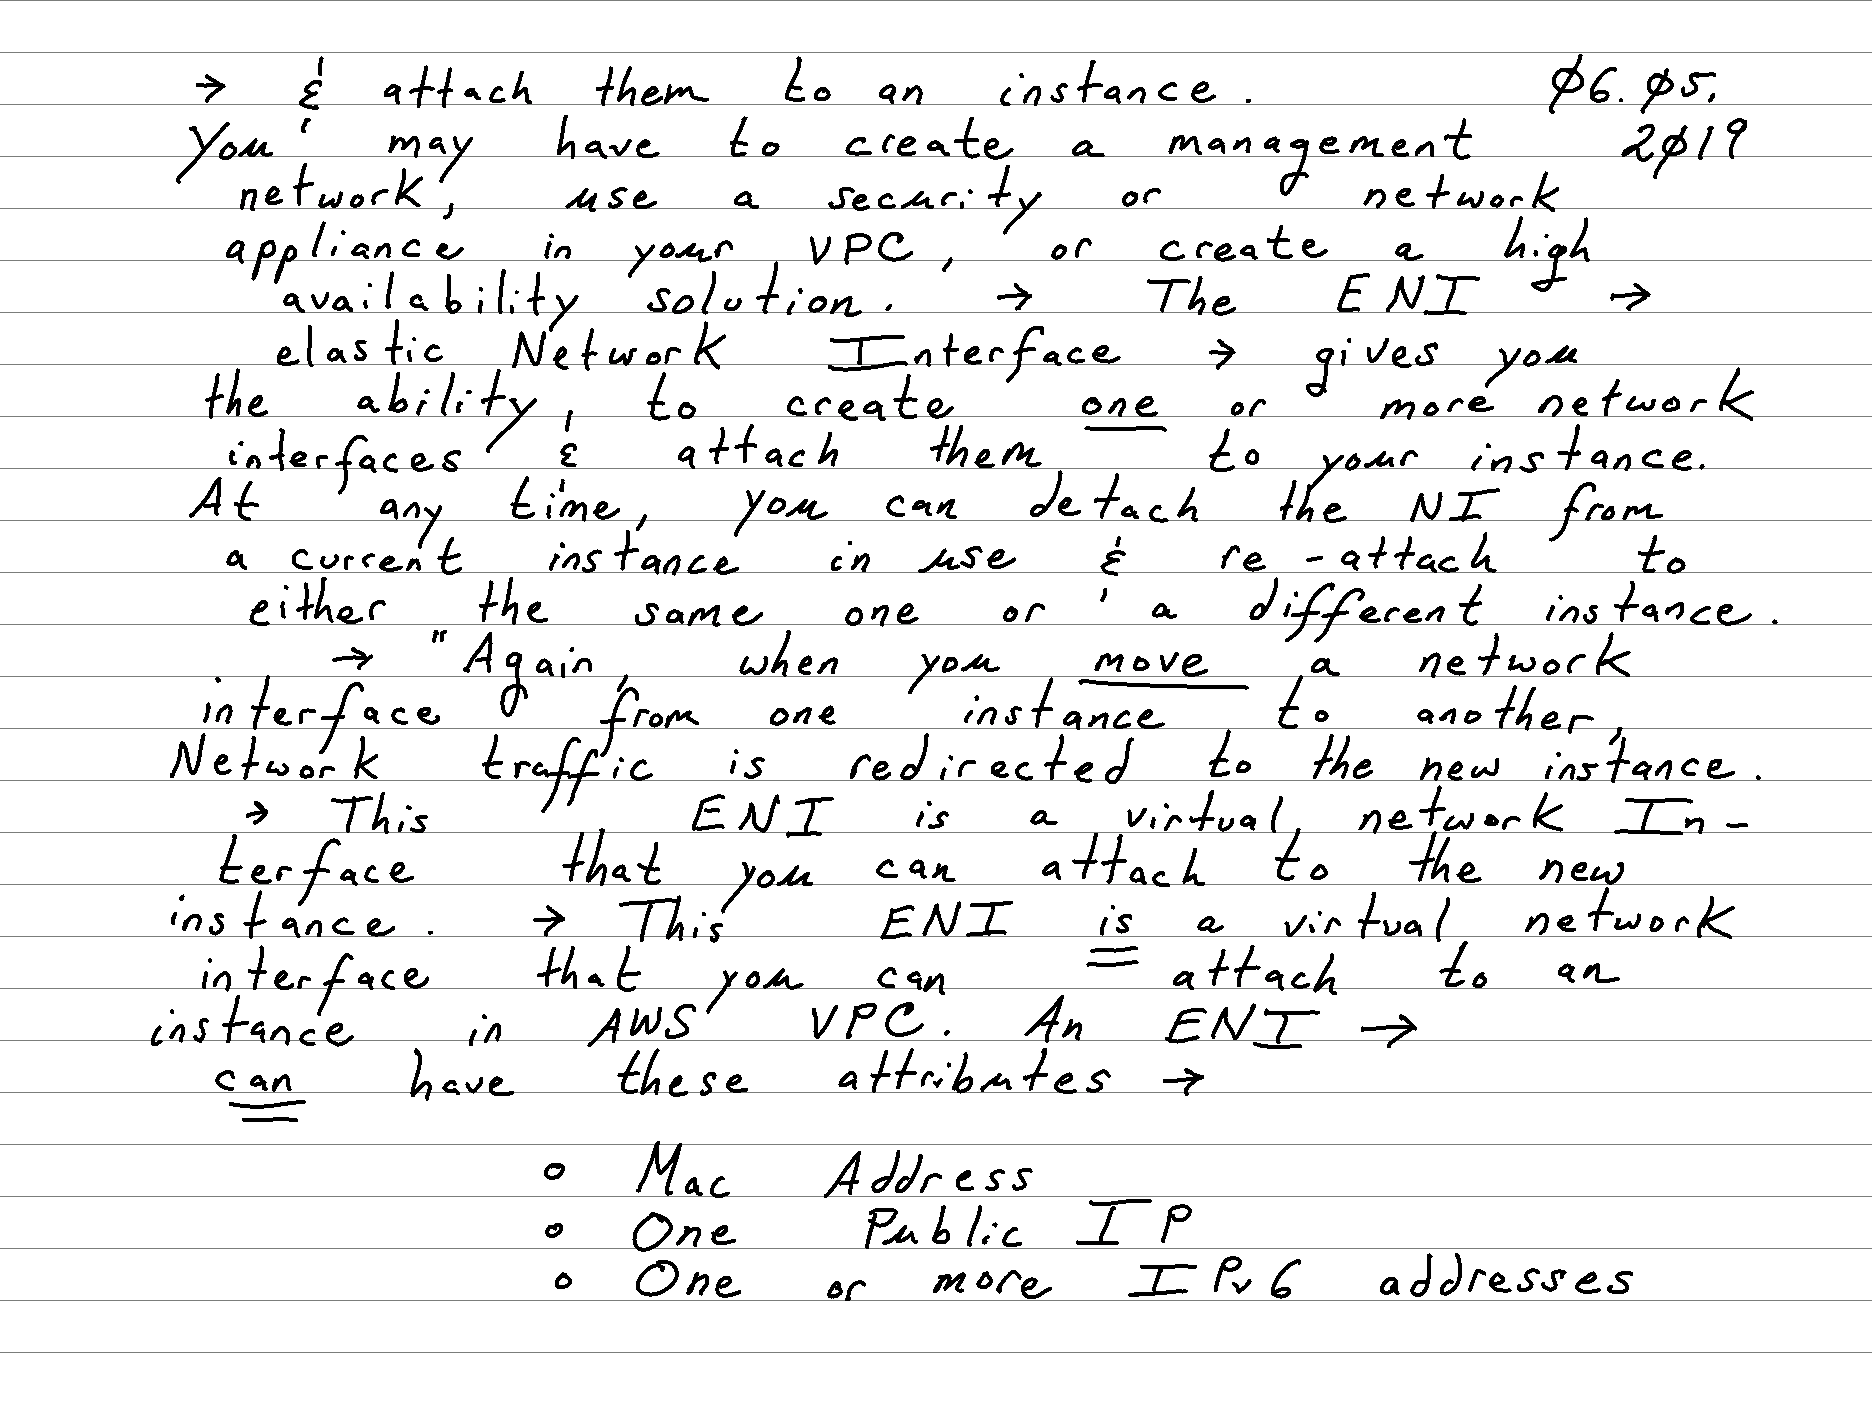 → & attach them to an instance. Ø6.Ø5.
You may have to create a management 2Ø19
network, use a security or network
appliance in your VPC, or create a high
availability solution. → The ENI →
elastic Network Interface → gives you
the ability, to create one or more network
interfaces & attach them to your instance.
At any time, you can detach the NI from
a current instance in use & re-attach to
either the same one or a different instance.
→ "Again, when you move a network
interface from one instance to another,
Network traffic is redirected to the new instance.
→ This ENI is a virtual network In-
terface that you can attach to the new
instance. → This ENI is a virtual network
interface that you can attach to an
instance in AWS VPC. An ENI →
can have these attributes →
◦ Mac Address
◦ One Public IP
◦ One or more IPv6 addresses